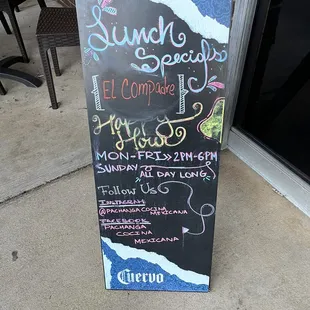 Lunch
Specials
El Compadre
Happy
Hour
MON-FRI 2PM-6PM
SUNDAY
ALL DAY LONG
Follow Us
INSTAGRAM
@PACHANGACOCINA
MEXICANA
FACEBOOK
PACHANGA
COCINA
MEXICANA
Cuervo